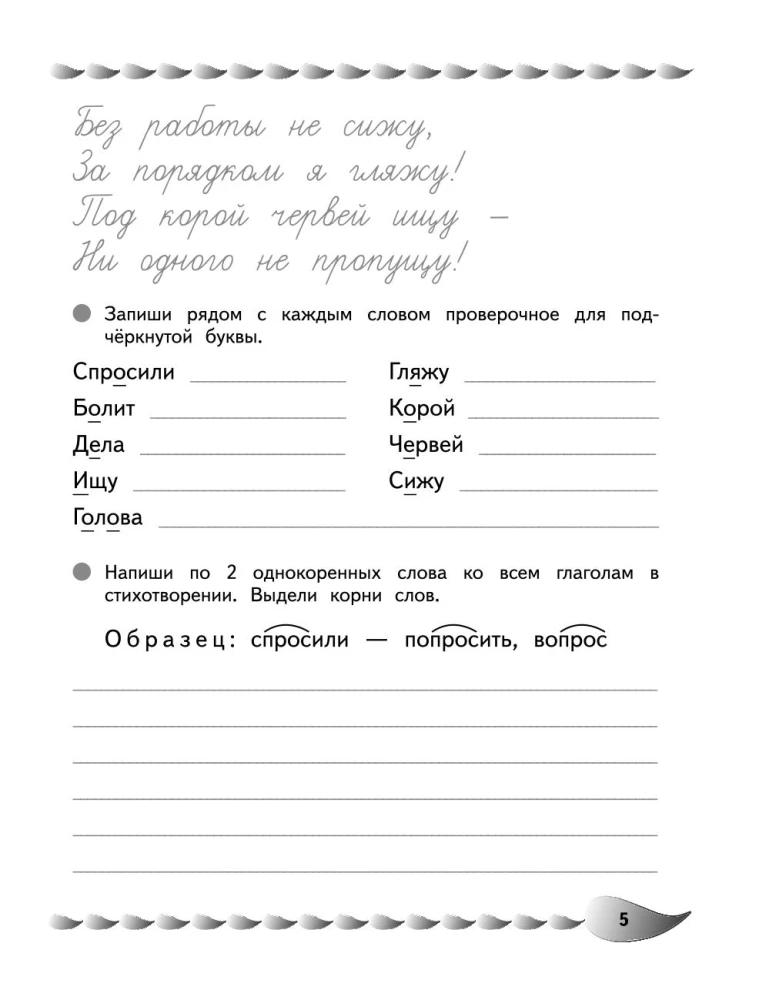 Без работы не сижу,
За порядком я гляжу!
Под корой червей ищу –
Ни одного не пропущу!
Запиши рядом с каждым словом проверочное для под-
чёркнутой буквы.
Спросили Гляжу
Болит Корой
Дела Червей
Ищу Сижу
Голова
Напиши по 2 однокоренных слова ко всем глаголам в
стихотворении. Выдели корни слов.
Образец: спросили — попросить, вопрос
5